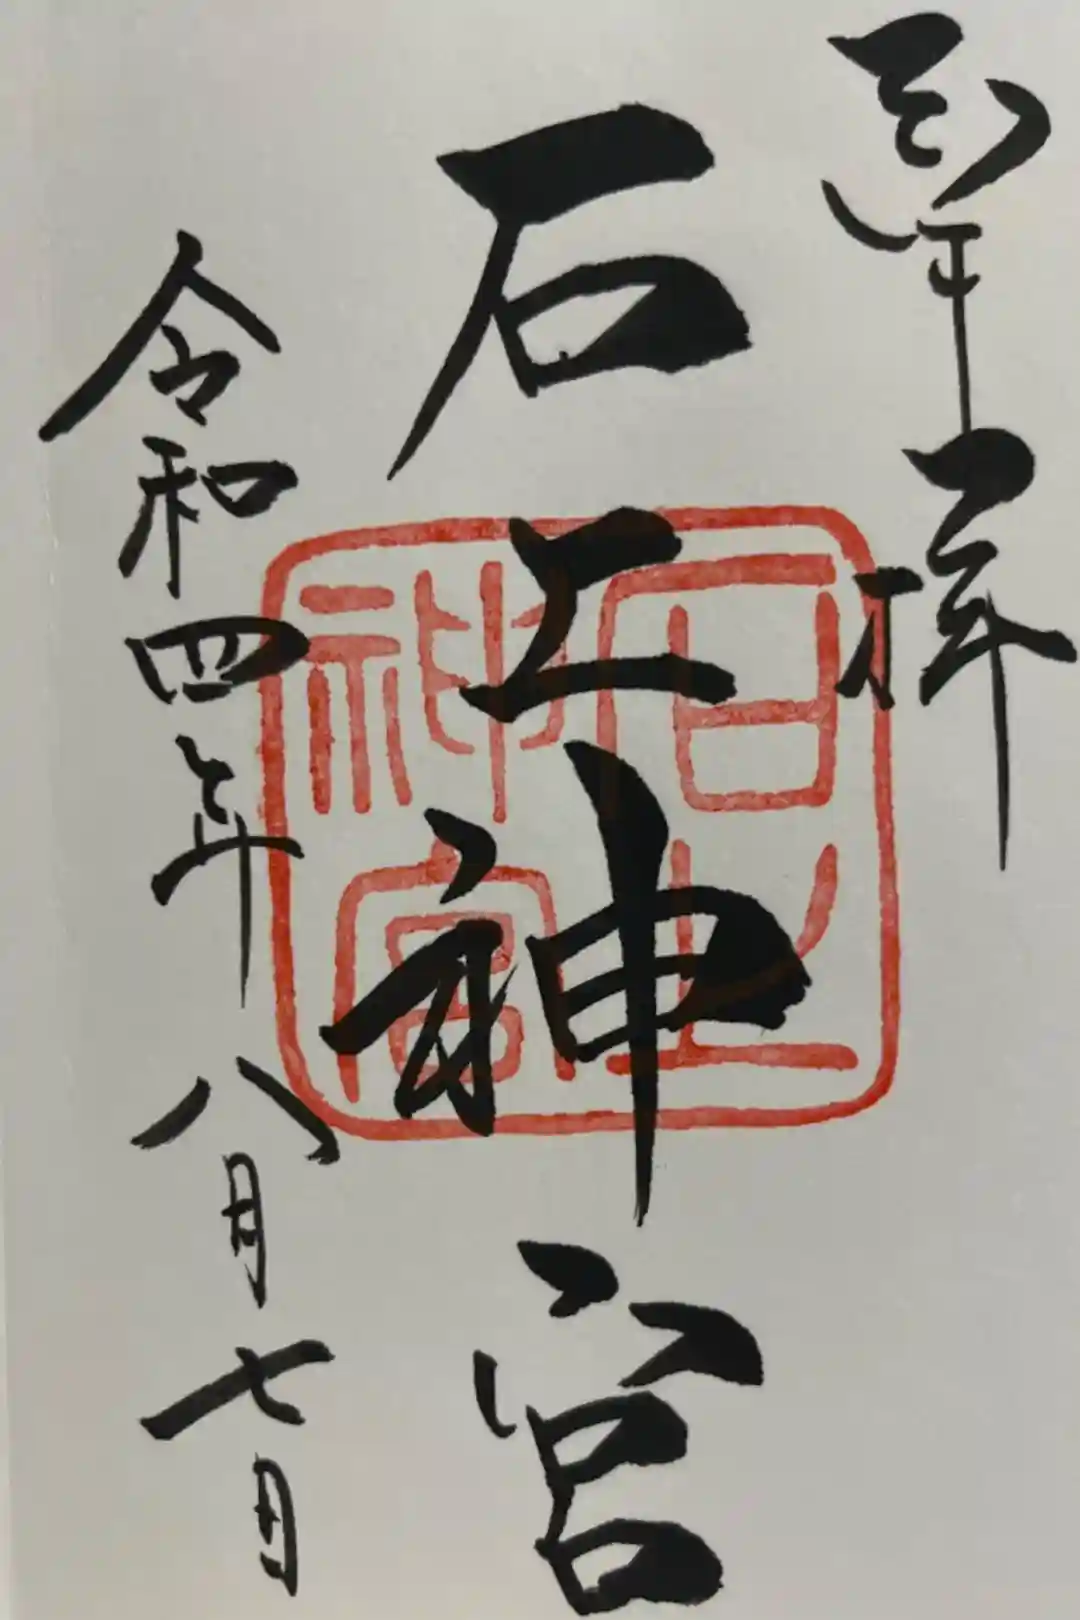 奉拝
石上神宮
令和四年八月七日
石上
神宮